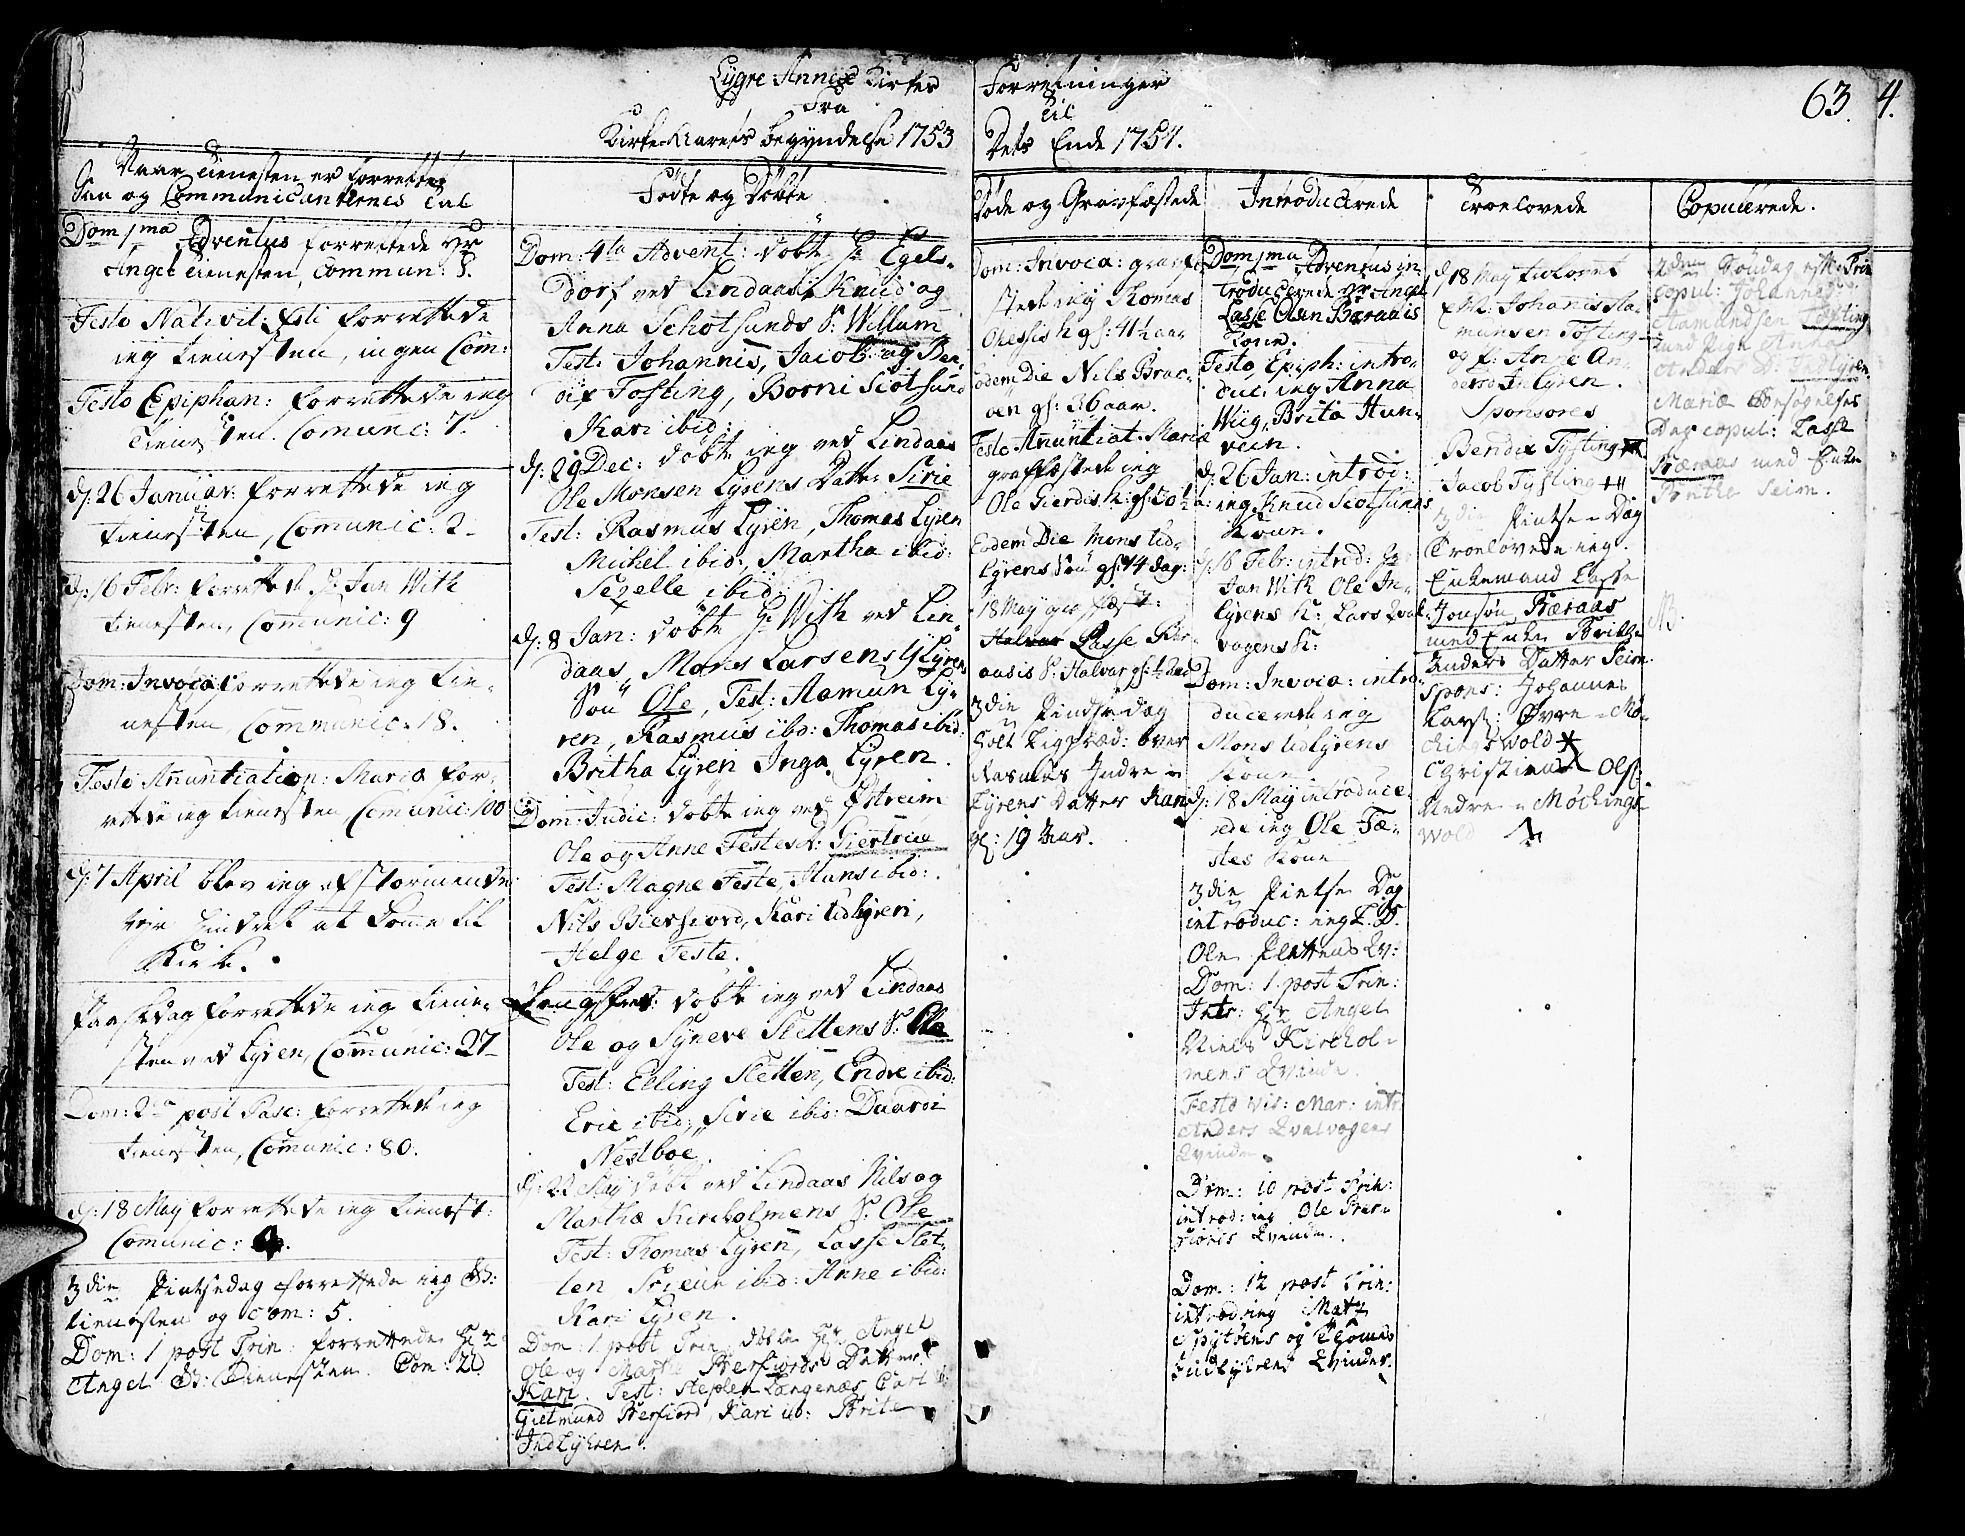 Lygre Annex Kirkes Forretninger
Fra til
Kirke-Aarets begyndelse 1753 Dets Ende 1754.
63. 4.
Naar tienesten er forrettet
Saa og Communicanternes Tal
Dom 1ma Adventus forrettede Hr
Angel tienesten, Commun: 8.
Festo Nativit: Xsti forrettede
ieg tienesten, ingen Com:
Festo Epiphan: forrettede ieg
tienesten. Comunic: 7.
d: 26 Januar: forrettede ieg
tienesten, Comunic: 2
d: 16 Febr: forrettede Hr Jan With
tienesten, Comunic: 9
Dom: Invoca: forrettede ieg tie-
nesten, Communic: 18.
Festo Anuntiation: Mariæ for-
rettede ieg tienesten, Comunic: 100
d: 7 April blev ieg af stormende
vejr hindret at komme til
Kirke.
Paaskedag forrettede ieg tiene-
sten ved Lyren, Comunic: 27
Dom: 2da post Pasc: forrettede ieg
tienesten, Comunic: 80.
d: 18 May forrettede ieg tienest:
Comunic: 4.
3die Pintsedag forrettede ieg G:
tienesten og Com: 5.
Dom: 1 post Trin: forrettede Hr
Angel G: Tienesten. Com: 20
Fødte og Døbte
Dom: 4ta Advent: døbte Hr Egels-
dorf ved Lindaas, Knud og
Anna Schotsunds S: Willum
Test: Johannis, Jacob og Ben-
dix Tosting, Borni Scotsund
Kari ibid:
d: 29 Dec: døbte ieg ved Lindaas
Ole Monsen Lyrens Datter Sirie
Test: Rasmus Lyren, Thomas Lyren
Michel ibid:, Martha ibid:
Sezelle ibid:
d: 8 Jan: døbte Hr With ved Lin-
daas, Mons Larsens Lyrens
Søn Ole, Test: Aamun Ly-
ren, Rasmus ibid: Thomas ibid:
Britha Lyren Inga Lyren.
Dom: Judic: døbte ieg ved Østreim
Ole og Anne Festes D: Giertrue
Test: Magne Feste, Hans ibid:
Nils Bierfiord, Kari Udlyren,
Helge Feste.
Langefred: døbte ieg ved Lindaas
Ole og Syneve Slettens S: Ole
Test: Elling Sletten, Endre ibid:
Eric ibid:, Sirie ibid: Daardi
Nestboe.
d: 22 May døbt ved Lindaas Nils og
Marthæ Kirckolmens S: Ole
Test: Thomas Lyren, Lasse Slet-
ten ibid: Anne ibid:
Kari Lyren.
Dom: 1 post Trin: døbte Hr Angel
Ole og Marte Berfiords Datter
Kari. Test: Stephen Langenæs, Carl
Gietmund Berfiord, Kari ib: Brite
Indlyhren.
Døde og Gravfæstede
Dom: Invoca: gravfæ-
stede ieg Thomas
Olessis K gl: 41½ aar
Eodem Die Nils Brac-
øen gl: 36 aar.
Festo Anuntiat. Mariæ
graffæstede ieg
Ole Gierdes K: gl: 50½ a:
Eodem Die Mons Ud-
Lyrens Søn gl: 14 dag:
18 May gravfæst:
Lasse Bær-
aasis S: Halvar gl: ½ Aar
3die Pindsedag
holt Ligpræd: over
Rasmus Indre
Lyrens Datter Kari
gl: 19 Aar.
Introducerede
Dom 1ma Adventus in-
troducerede Hr Angel
Lasse Olsen Bæraais
Kone.
Festo Epiph: intro-
duc: ieg Anna
Wiig, Brita Hun-
dvin.
d: 26 Jan: introd:
ieg Knud Scotsunds
Kone.
d: 16 Febr: introd: Hr
Jan With Ole In-
lyrens K: Lars Qval-
vogens K:
Dom: Invoca: intro-
ducerede ieg
Mons Udlyrens
Kone
d: 18 May introduce-
rede ieg Ole Fæ-
stes Kone
3die Pintse Dag
introduc: ieg
Ole Slettens Qv:
Dom: 1. post Trin:
Intr: Hr Angel
Niels Kirckol-
mens Qvinde.
Festo Vis: Mar: intr
Anders Qvalvogens
Qvinde
Dom: 10 post Trin:
introd: ieg Ole Bær-
fiords Qvinde.
Dom: 12 post Trin:
introd ieg Matz
Spytøens og Thomes
Indlyhrens Qvinder.
Troelovede
d 18 May trolovet
Johannis Aa-
munsen Tosting
og P: Anne An-
dersd Inlyren.
Sponsores
Bendix Tysting
Jacob Tysting
3die Pintse Dag
Troelovede ieg
Enkemand Lasse
Jonsøn Bæraas
med Enke Brithe
Anders Datter Seim.
Spons: Johannes
Lars: Øvre-Mø-
ckingswold
Christian Ols:
Nedre-Møckings-
wold
Copulerede.
2den Søndag eft: Trin
copul: Johannes
Aamundsen Tosting
med Pige Anna
Anders D: Indlyren
Mariæ Besøgelses
Dag copul: Lasse
Bæraas med Enke
Brithe Seim.
NB.